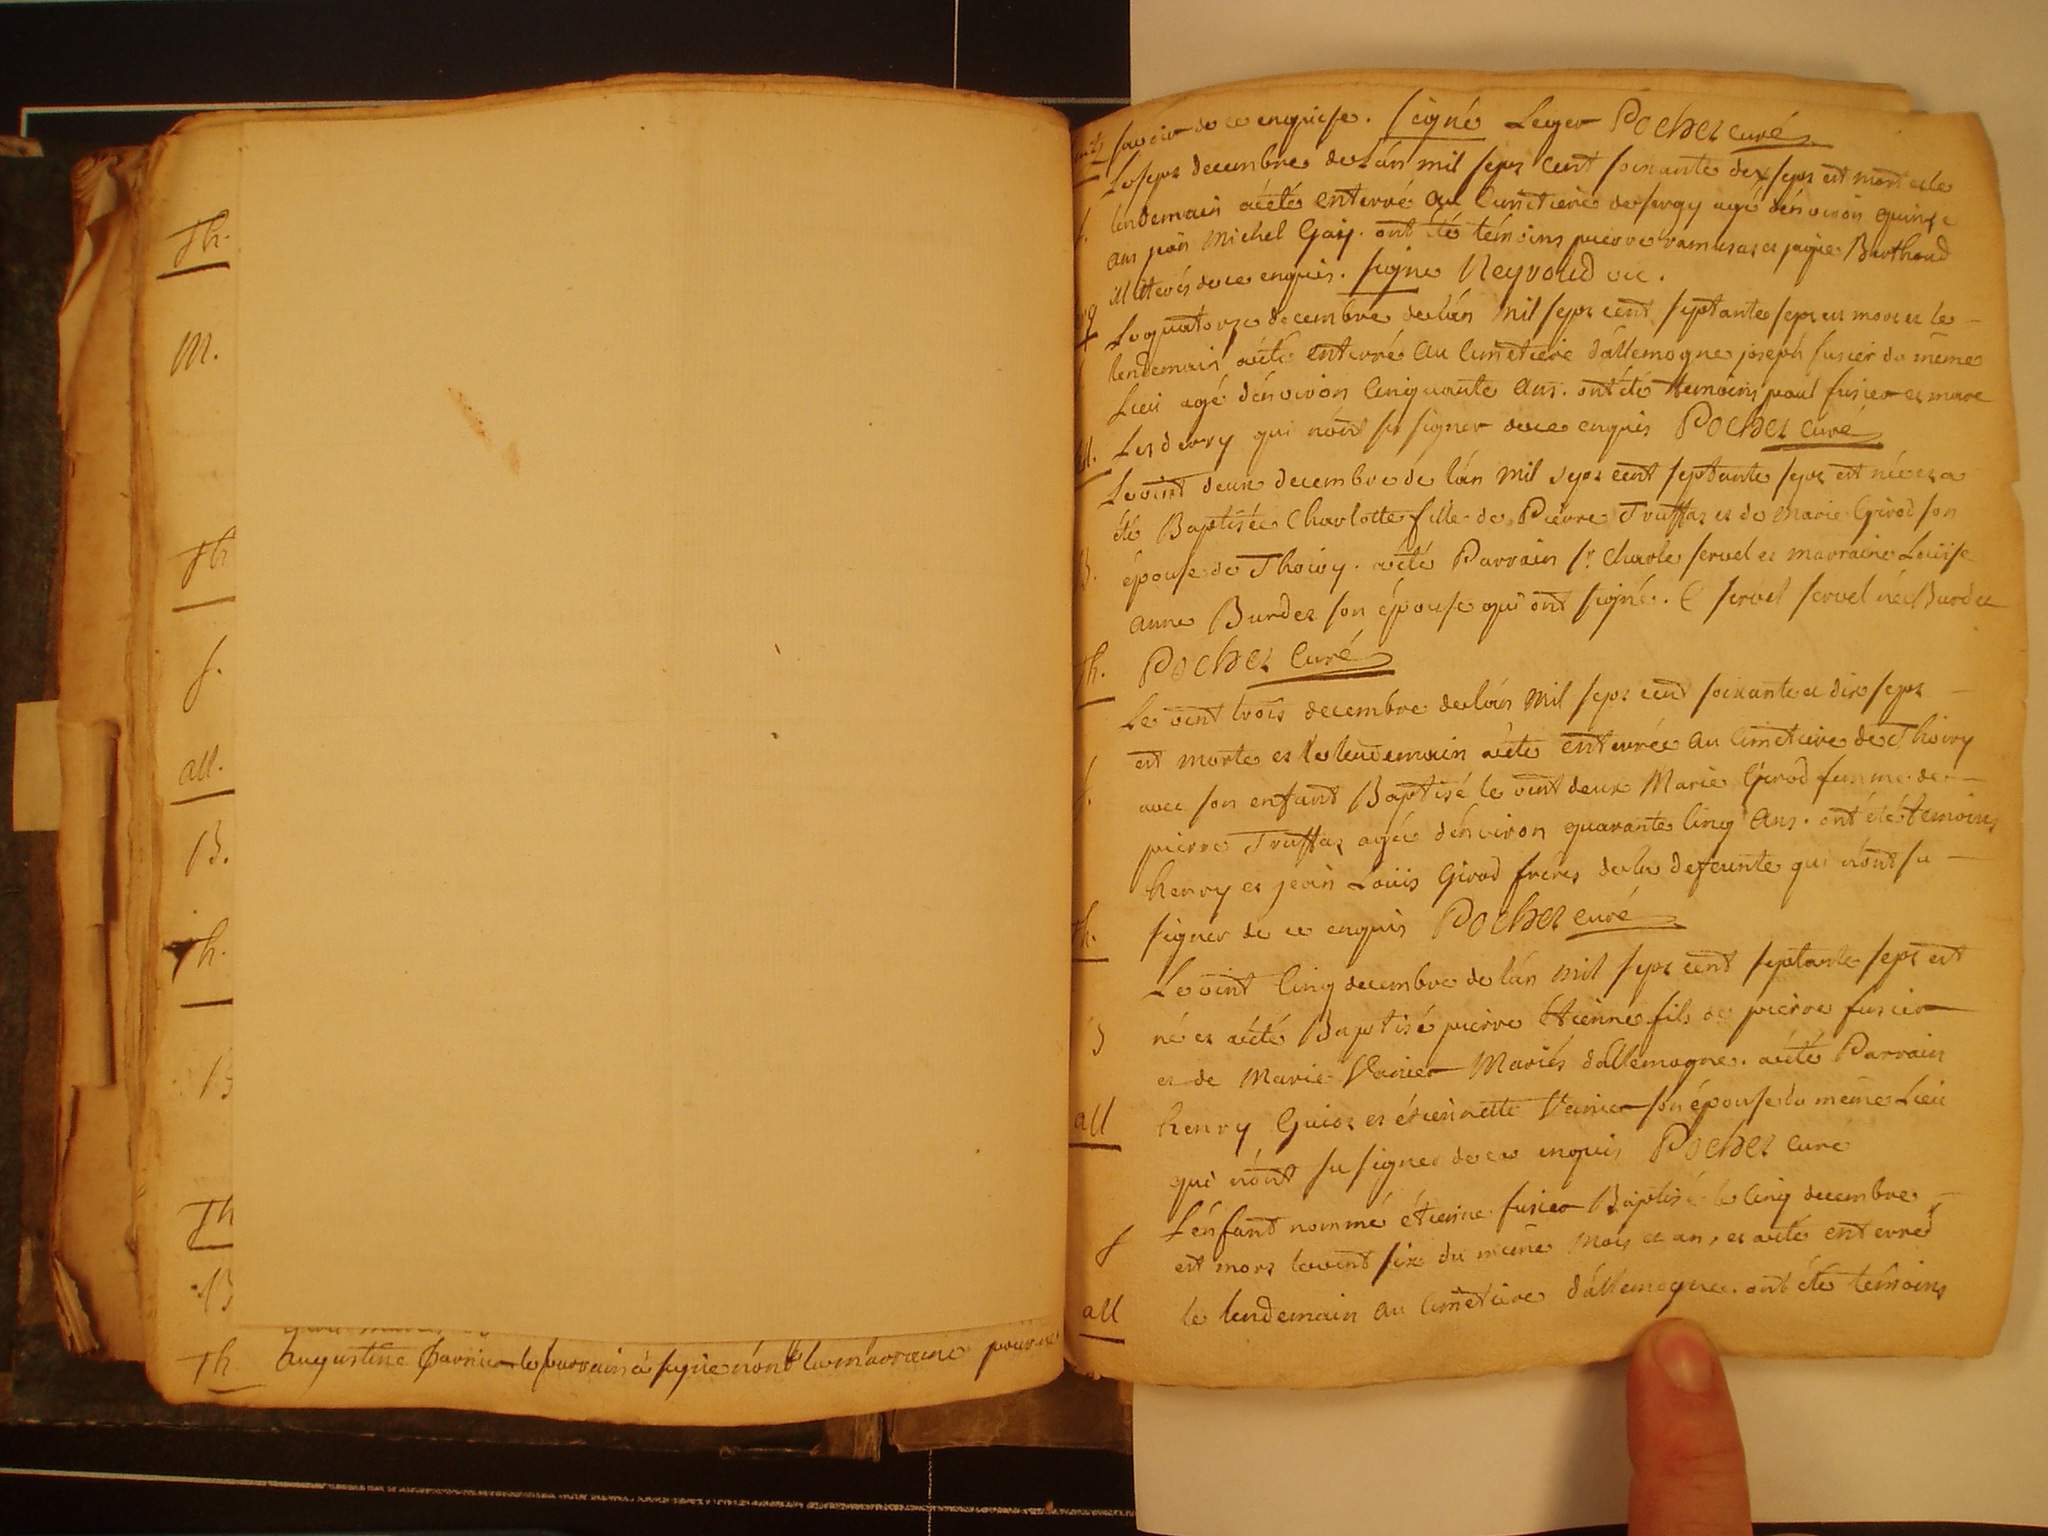 Th.
M.
Th
f.
all.
B.
Th.
B
Th
B
Th augustine le parrain a signé non la marraine pour ne
savoir de ce enquise. signé Leger Pochet curé
Le sept decembre de l'án mil sept cent soixante dix sept est mort et le
f. lendemain a été enterré au cimetiere de sergy agé dénviron quinze
ans jean Michel Gay. ont été témoins pierre ramusas et jaque Barthoud
illiterés de ce enquis. signe Neyroud vic.
Le quatorze decembre de lán mil sept cent septante sept est mort et le
lendemain a été enterré au cimetiere dállemogne joseph fusier du même
Lieu agé dénviron Cinquante ans. ont été temoins paul fusier et marc
all. Lenderry qui nónt su signer de ce enquis Pochet curé
Le vint deux decembre de lán mil sept cent septante sept est née et a
été Baptisée Charlotte fille de Pierre Truffaz et de marie Girod son
B. épouse de Thoiry. a été Parrain sr. Charle servel et marraine Louise
anne Burdet son épouse qui ont signé. C servel servel née Burdet
Th. Pochet Curé
Le vint trois decembre de lán mil sept cent soixante et dix sept
est morte et le lendemain a été enterrée au cimetiere de Thoiry
f. avec son enfant Baptisé le vint deux Marie Girod femme de
pierre Truffaz agée dénviron quarante cinq ans. ont été témoins
henry et jean Loüis Girod freres de la defeunte qui nónt su
Th. signer de ce enquis Pochet curé
Le vint Cinq decembre de lán mil sept cent septante sept est
B né et a été Baptisé pierre étienne fils de pierre fusier
et de Marie Vanier Mariés dállemogne. a été Parrain
all henry Guiot et étiennette Vanier son épouse du même Lieu
qui nónt su signer de ce enquis Pochet curé
f L'énfant nommé étienne fusier Baptisé le cinq decembre
est mort le vint six du même mois et an, et a été enterré
all le lendemain au cimetiere dállemogne. ont été témoins